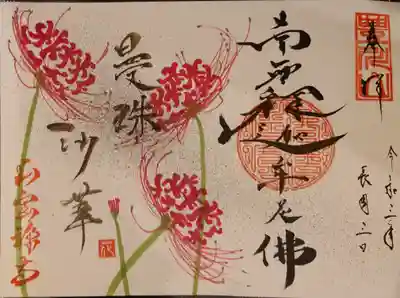 奉拝
令和三年
長月三日
南無釋迦牟尼佛
曼珠
沙華